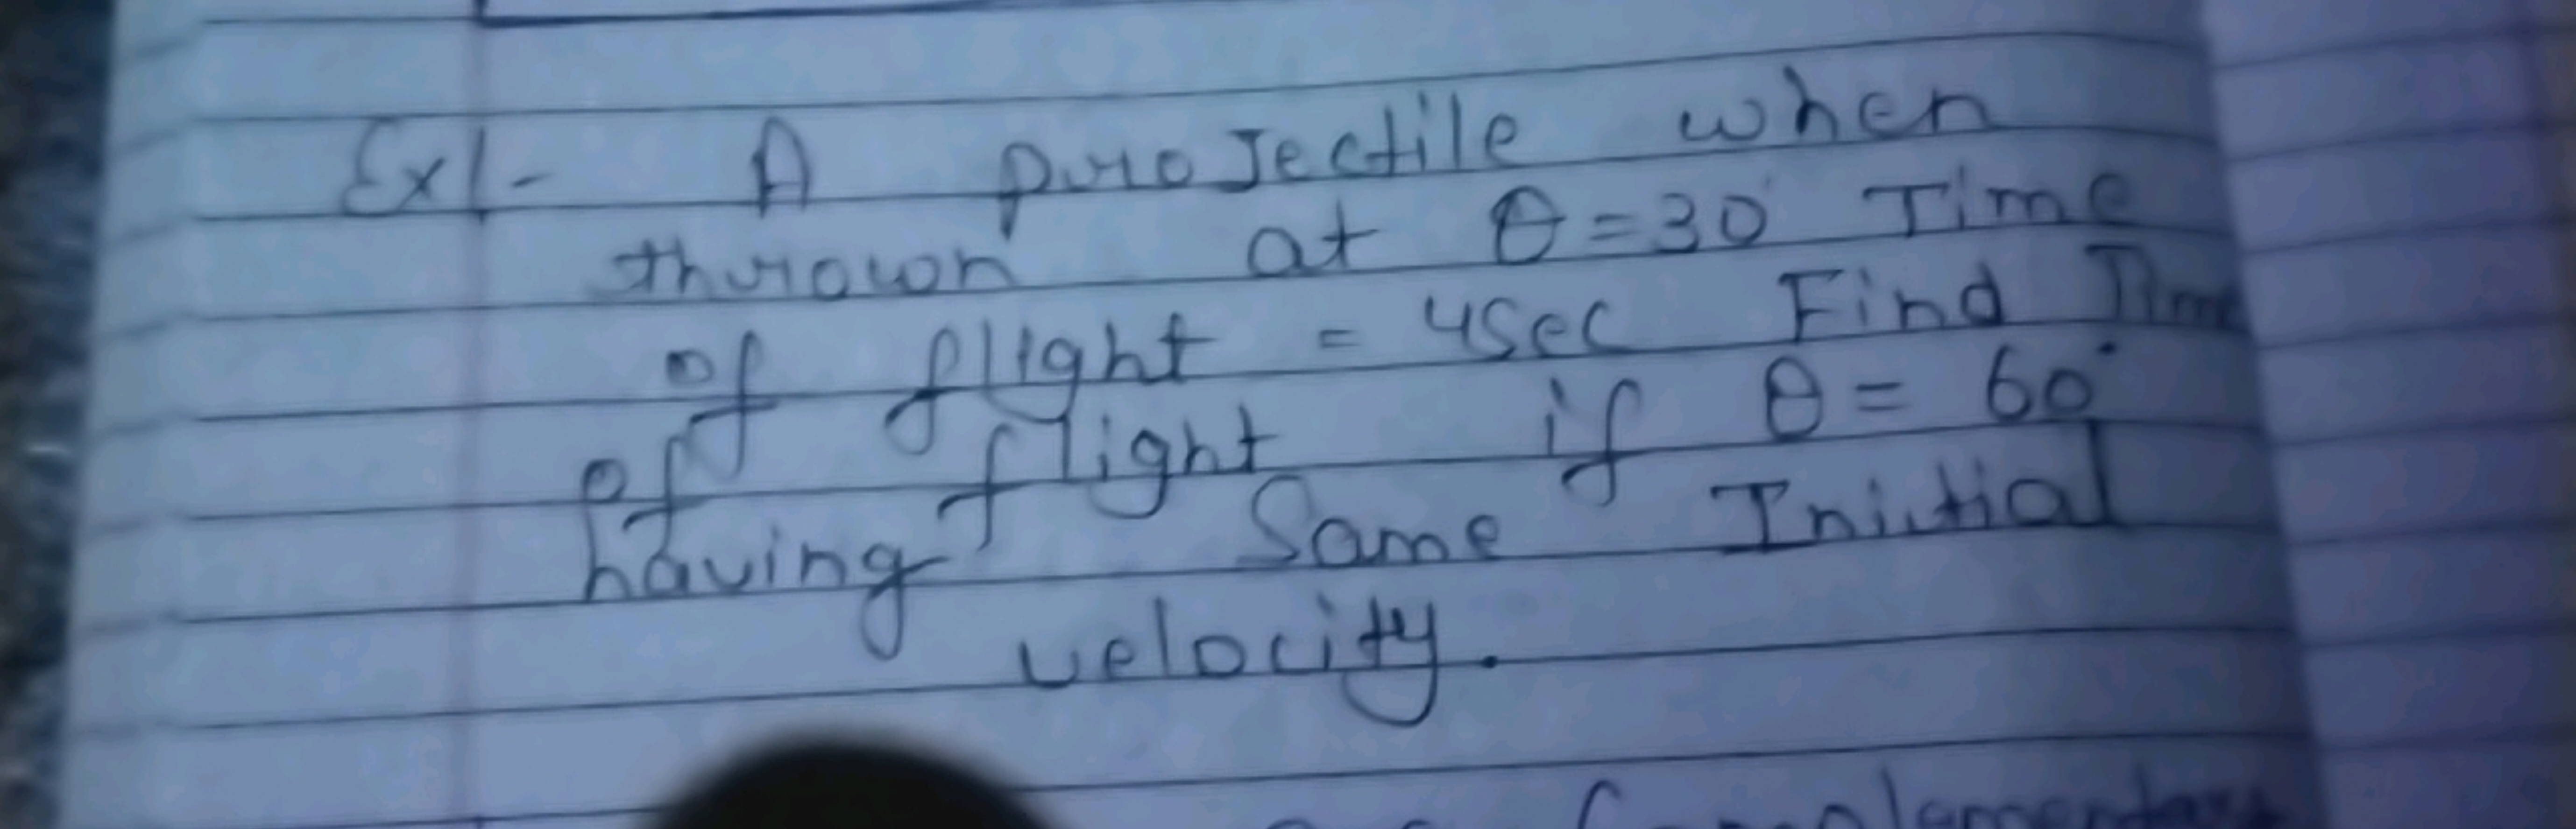 Ex1- A projectile when
thrown at θ=30° Time
of flight = 4sec Find Time
of flight if θ= 60°
having Same Initial
velocity.
Complementary